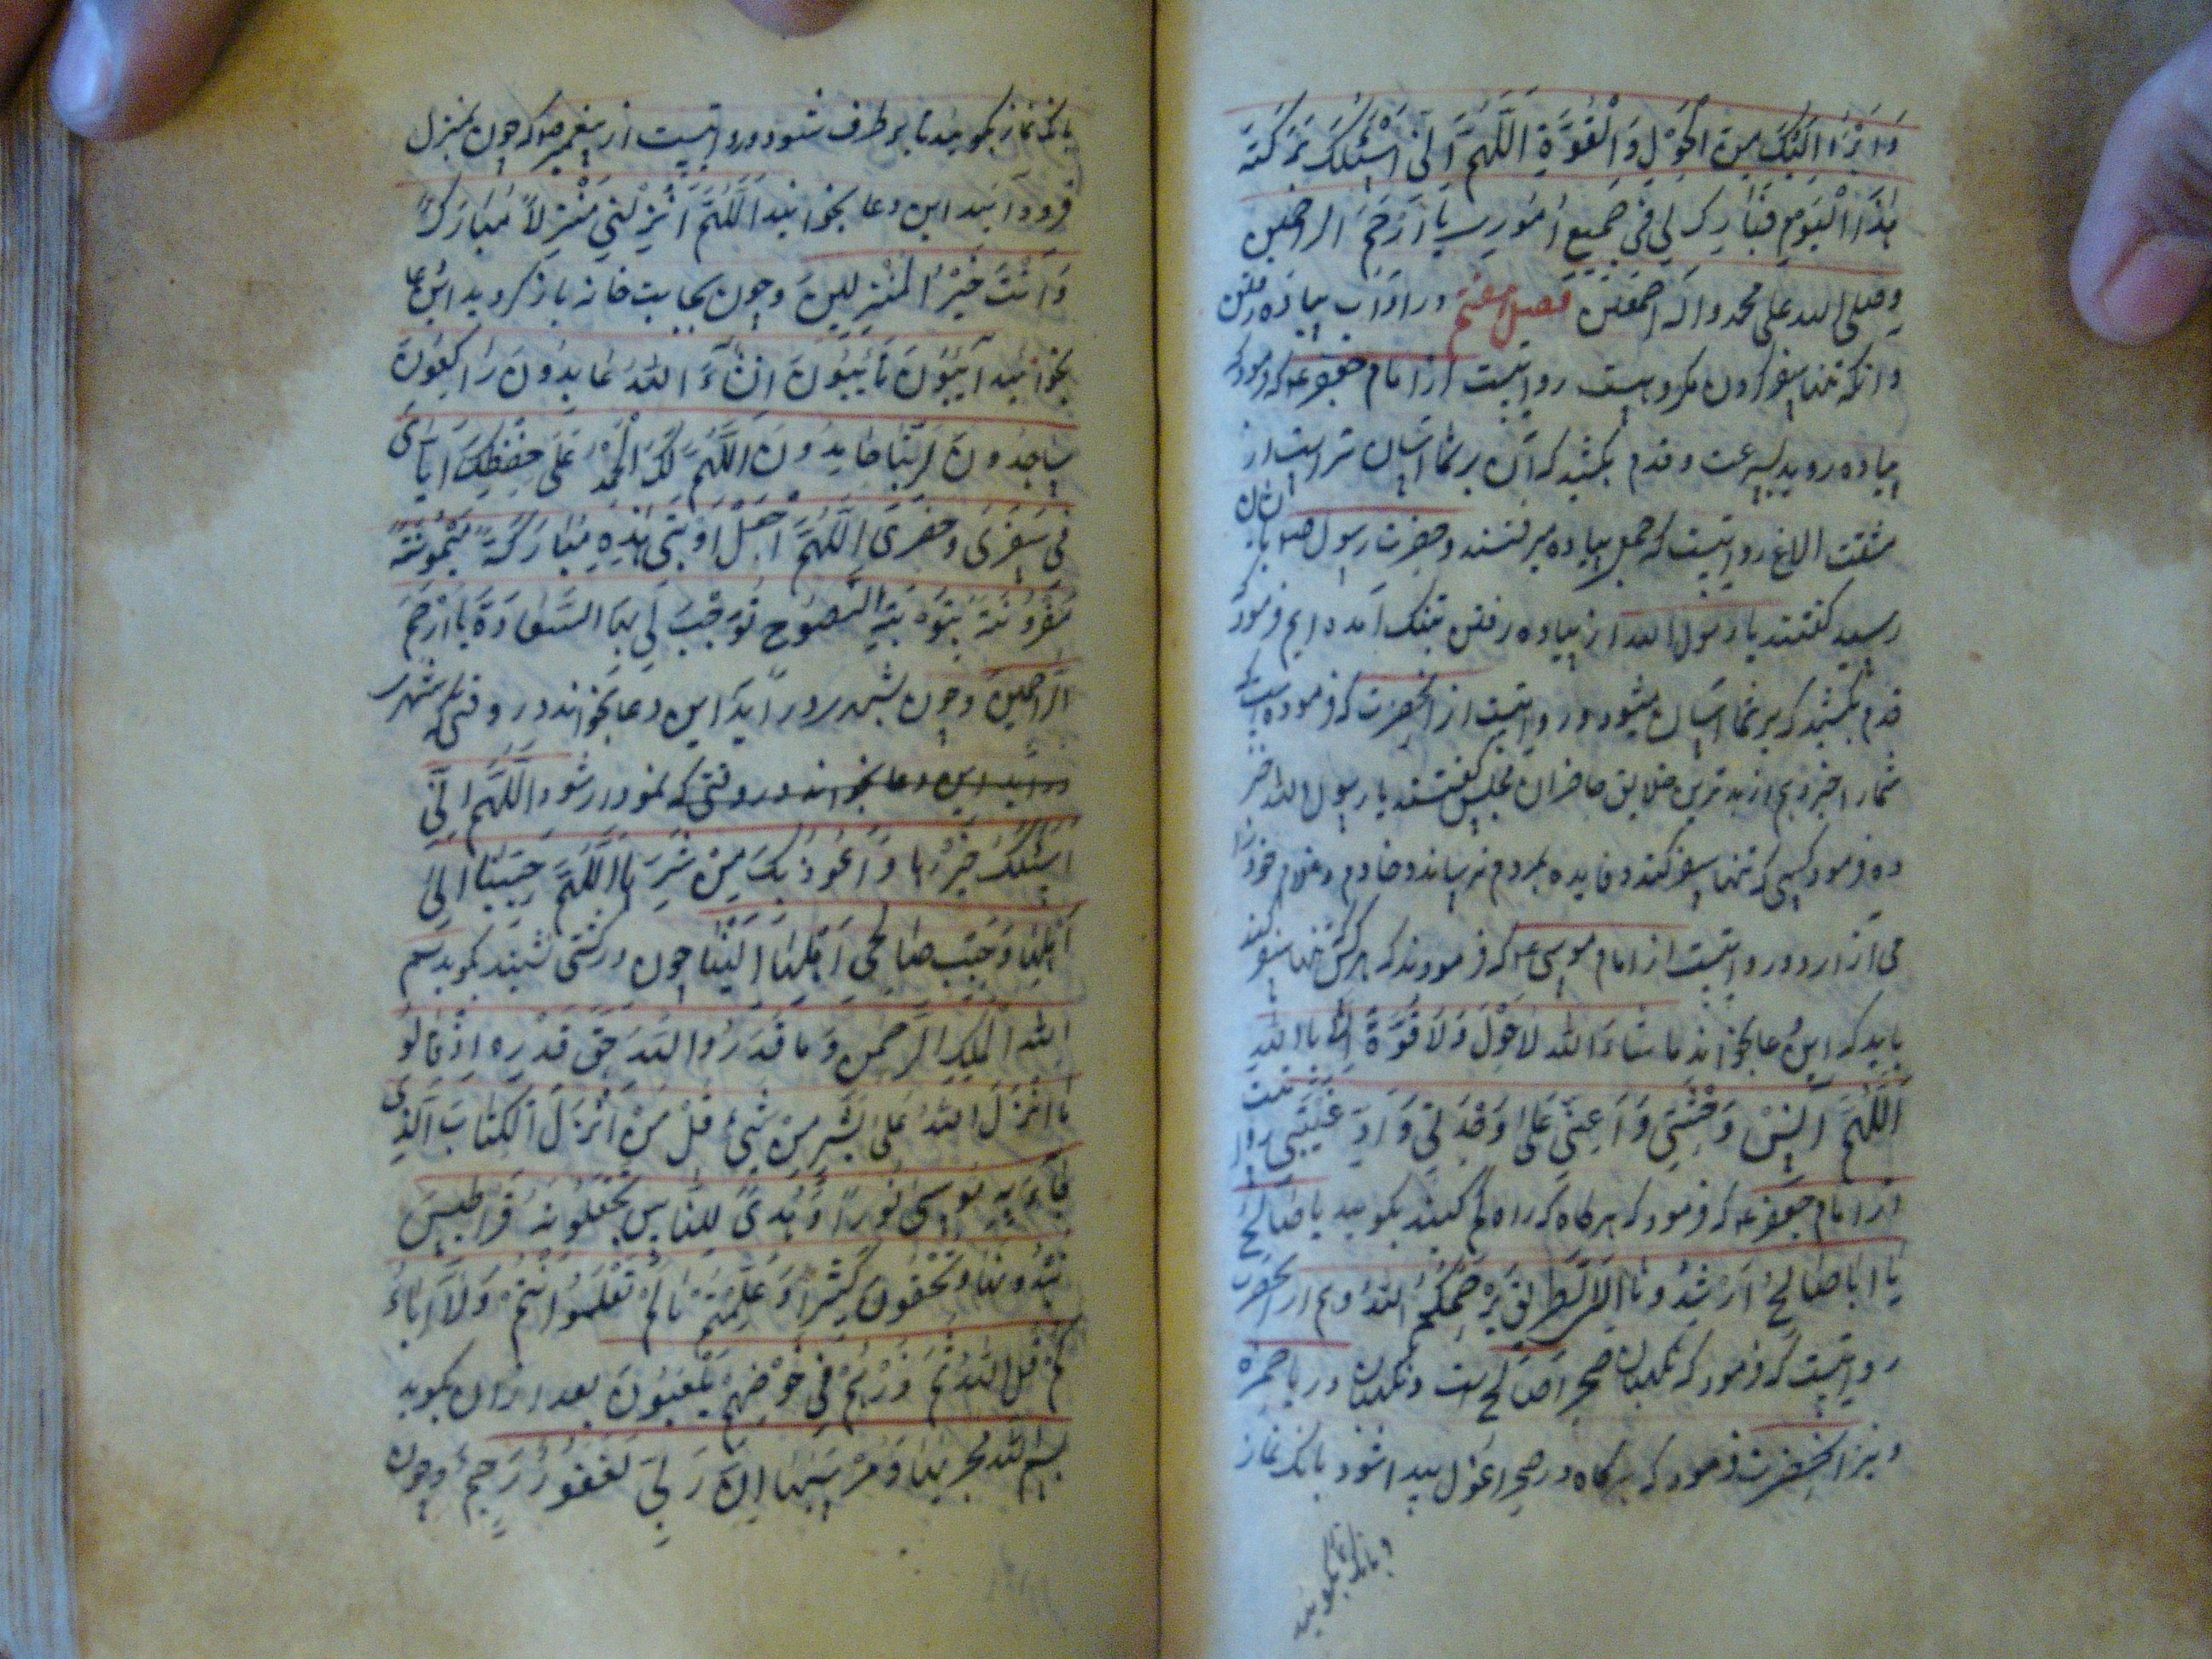 وَاَبْرَأُ اِلَیْكَ مِنَ الْحَوْلِ وَالْقُوَّةِ اَللّٰهُمَّ اِنّی اَسْئَلُكَ بَرَكَةَ
هٰذَا الْیَوْمِ فَبَارِك لِی فِی جَمِیعِ اُمُورِی یَا اَرْحَمَ الراحمین
وصلی الله علی محمد واله اجمعین فصل هفتم در اداب پیاده رفتن
وانکه تنها سفر کردن مکروهست روایتست از امام جعفر ع که فرمودکه
پیاده روید بسرعت و قدم بکشید که آن بر شما آسان تر است از
مشقت الاغ روایتست که جمعی پیاده میرفتند وحضرت رسول ص بایشان
رسید کفتند یا رسول الله از پیاده رفتن بتنک آمده ایم فرمود
قدم بکشید که بر شما آسان میشود و روایتست از انحضرت که فرموده است که
شما را خبر دهم از بدترین خلایق حاضران مجلس کفتند یا رسول الله خبر
ده فرمود کسی که تنها سفر کند و فایده بمردم نرساند و خادم و غلام خود را
می آزارد و روایتست از امام موسی ع که فرمودند که هر کس تنها سفر کند
باید که این دعا بخواند مَا شَاءَ الله لَا حَوْلَ وَلَا قُوَّةَ اِلَّا بِاللهِ
اَللّٰهُمَّ اٰنِسْ وَحْشَتِی وَاَعِنِّی عَلٰی وَحْدَتِی وَاَدِّ غَیْبَتِی روایتست
از امام جعفر ع که فرمود که هر کاه که راه کم کنید بکویید یا صَالِحُ
یَا اَبَا صَالِحُ اَرْشِدُونَا اِلَی الطَّرِیقِ یَرْحَمُكُمُ اللهُ وهم از انحضرت
روایتست که فرمود که نکهبان صحرا صالح است و نکهبان دریا حمزه
و نیز انحضرت فرمود که هر کاه در صحرا غول پیدا شود بانک نماز
بانک نماز بکویید تا بر طرف شود و روایتست از پیغمبر ص که چون بمنزل
فرود آیید این دعا بخوانید اَللّٰهُمَّ اَنْزِلْنِی مُنْزَلاً مُبَارَكاً
وَاَنْتَ خَیْرُ الْمُنْزِلِینَ وچون بجانب خانه باز کردید این دعا
بخوانید آیِبُونَ تَائِبُونَ اِنْ شَاءَ اللهُ عَابِدُونَ رَاكِعُونَ
سَاجِدُونَ لِرَبِّنَا حَامِدُونَ اَللّٰهُمَّ لَكَ الْحَمْدُ عَلٰی حِفْظِكَ اِیَّایَ
فِی سَفَرِی وحَضَرِی اَللّٰهُمَّ اجْعَلْ اَوْبَتِی هٰذِهِ مُبَارَكَةً مَیْمُونَةً
مَقْرُونَةً بِتَوْبَةِ النَّصُوحِ تُوجِبُ لِی بِهَا السَّعَادَةَ یَا اَرْحَمَ
الرَّاحِمِینَ وچون بشهر در آید این دعا بخواند در وقتی که شهر
در آید این دعا بخواند در وقتی که نمودار شود اَللّٰهُمَّ اِنِّی
اَسْئَلُكَ خَیْرَهَا وَاَعُوذُ بِكَ مِنْ شَرِّهَا اَللّٰهُمَّ حَبِّبْنَا اِلٰی
اَهْلِهَا وَحَبِّبْ صَالِحِی اَهْلِهَا اِلَیْنَا چون در کشتی نشیند بکوید بسم
اللهِ الْمَلِكِ الرَّحْمٰنِ وَمَا قَدَرُوا اللهَ حَقَّ قَدْرِهِ اِذْ قَالُوا
مَا اَنْزَلَ اللهُ عَلٰی بَشَرٍ مِنْ شَیْءٍ قُلْ مَنْ اَنْزَلَ الْكِتَابَ الَّذِی
جَاءَ بِهِ مُوسٰی نُوراً وَهُدیً لِلنَّاسِ تَجْعَلُونَهُ قَرَاطِیسَ
تُبْدُونَهَا وَتُخْفُونَ كَثِیراً وَعُلِّمْتُمْ مَا لَمْ تَعْلَمُوا اَنْتُمْ وَلَا آبَاءُ
كُمْ قُلِ اللهُ ثُمَّ ذَرْهُمْ فِی خَوْضِهِمْ یَلْعَبُونَ بعد از آن بکوید
بِسْمِ اللهِ مَجْرٰیهَا وَمُرْسٰیهَا اِنَّ رَبِّی لَغَفُورٌ رَحِیمٌ وچون